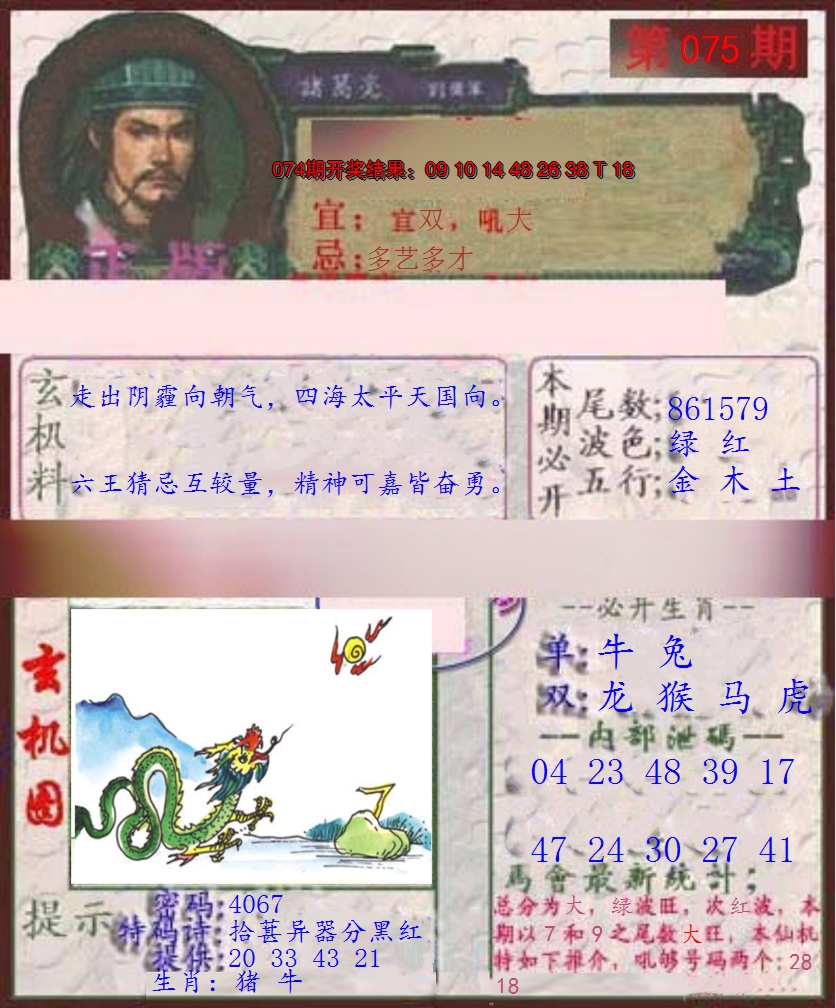 第 075 期
諸葛亮
074期开奖结果：09 10 14 48 26 38 T 18
宜：宜双，吼大
忌：多艺多才
正版
玄机料
走出阴霾向朝气，四海太平天国向。
六王猜忌互较量，精神可嘉皆奋勇。
本期必开
尾数：861579
波色：绿 红
五行：金 木 土
玄机图
7
--必开生肖--
单：牛 兔
双：龙 猴 马 虎
--内部泄碼--
04 23 48 39 17
47 24 30 27 41
馬會最新統計；
总分为大，绿波旺，次红波，本
期以7和9之尾数大旺，本仙机
特如下推介，吼够号码两个：28
18
提示
密码：4067
特码诗：拾葚异器分黑红
提供：20 33 43 21
生肖：猪 牛